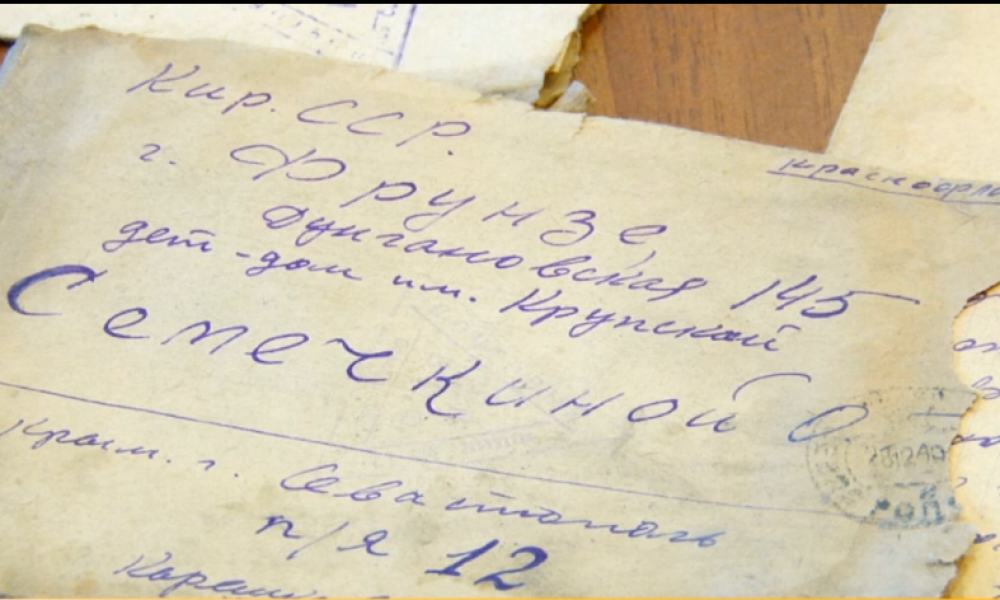 Кир. ССР.
г. Фрунзе
Дунгановская 145
дет-дом им. Крупской
Семечкиной О.
Крым. г. Севастополь
п/я 12
281240